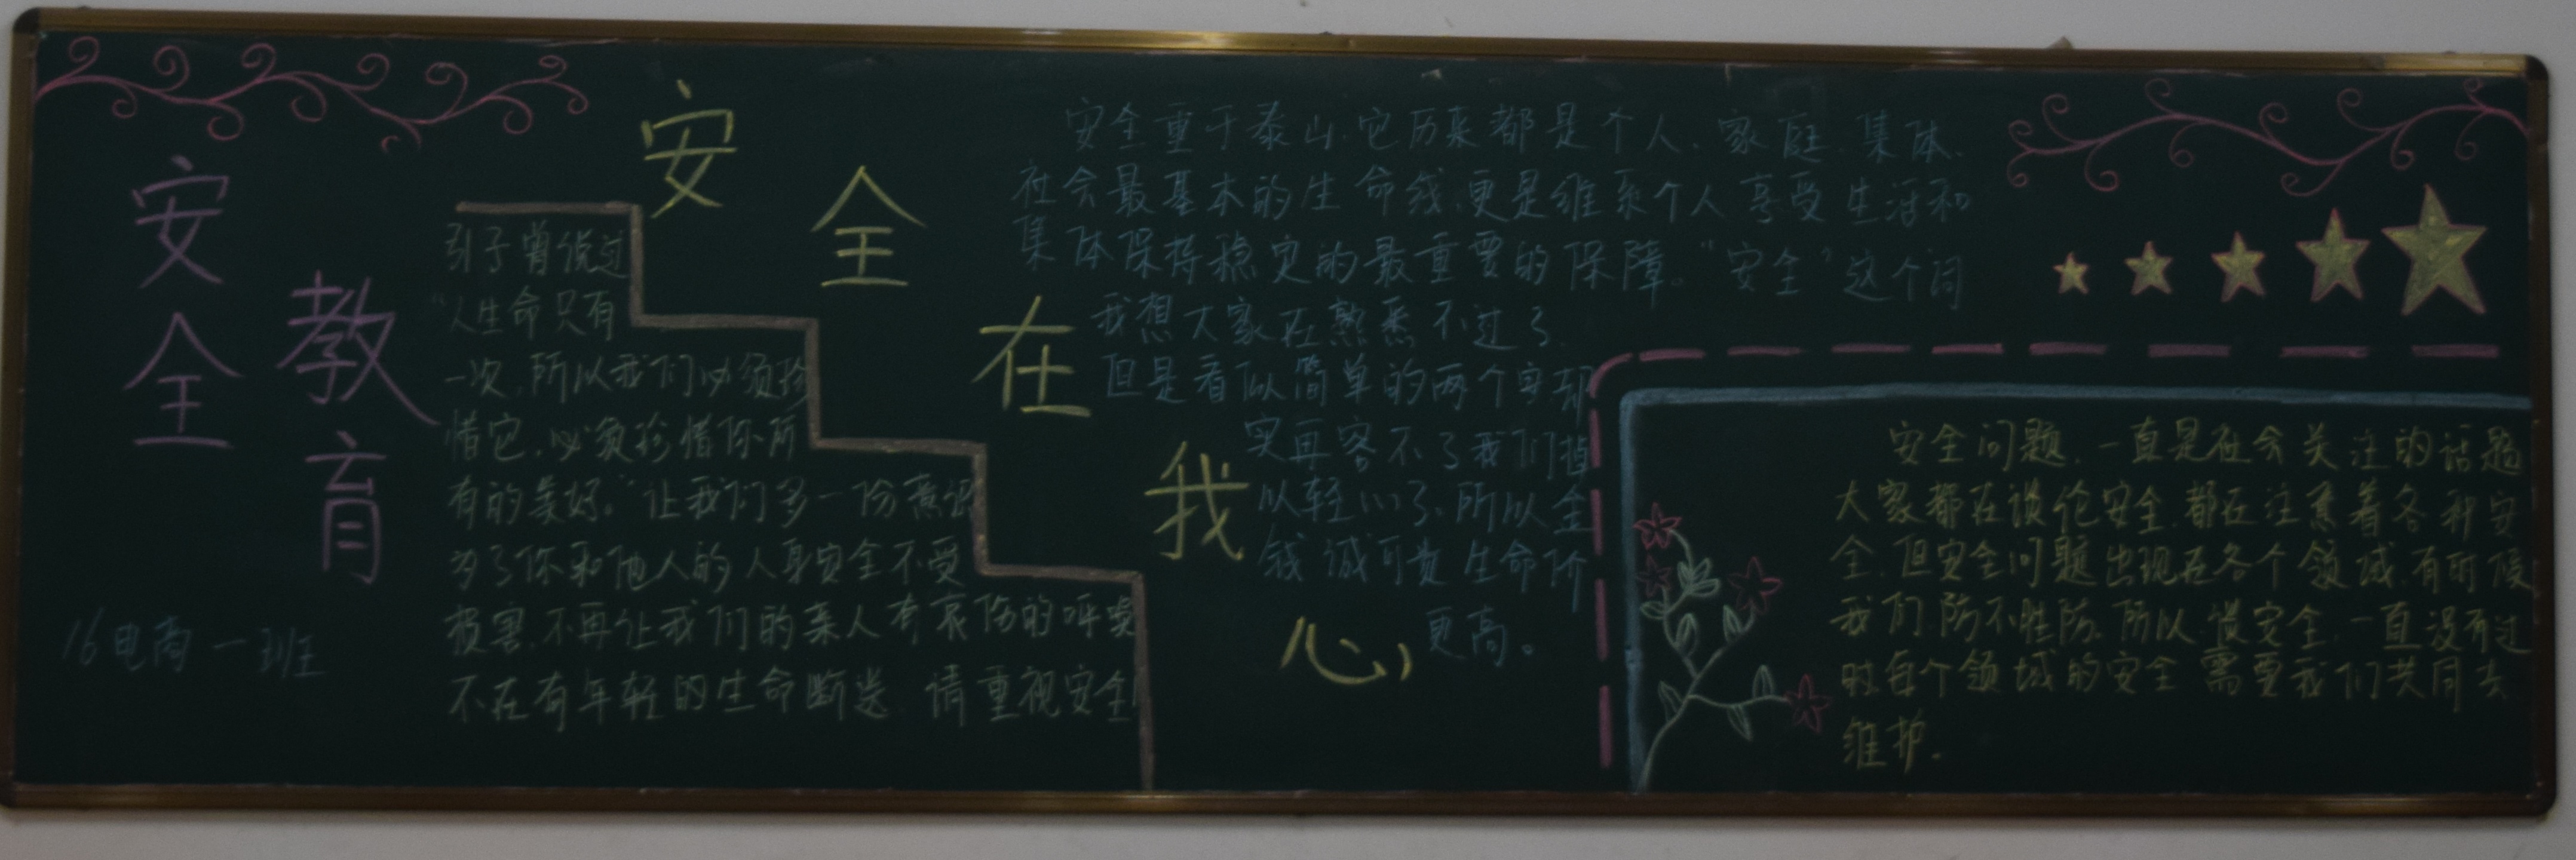 安全
教育
16电商一班
安全在我心
引子曾说过
“人生命只有
一次,所以我们必须珍
惜它,必须珍惜你所
有的美好。”让我们多一份意识
为了你和他人的人身安全不受
损害,不再让我们的亲人有哀伤的呼唤
不在有年轻的生命断送 请重视安全!
安全重于泰山,它历来都是个人、家庭、集体、
社会最基本的生命线,更是维系个人享受生活和
集体保持稳定的最重要的保障。“安全”这个词
我想大家在熟悉不过了
但是看似简单的两个字却
实再容不了我们掉
以轻心了,所以金
钱诚可贵生命价
更高。
安全问题,一直是社会关注的话题
大家都在谈论安全,都在注意着各种安
全,但安全问题出现在各个领域,有时候
我们防不胜防,所以,谈安全,一直没有过
时每个领域的安全需要我们共同去
维护.